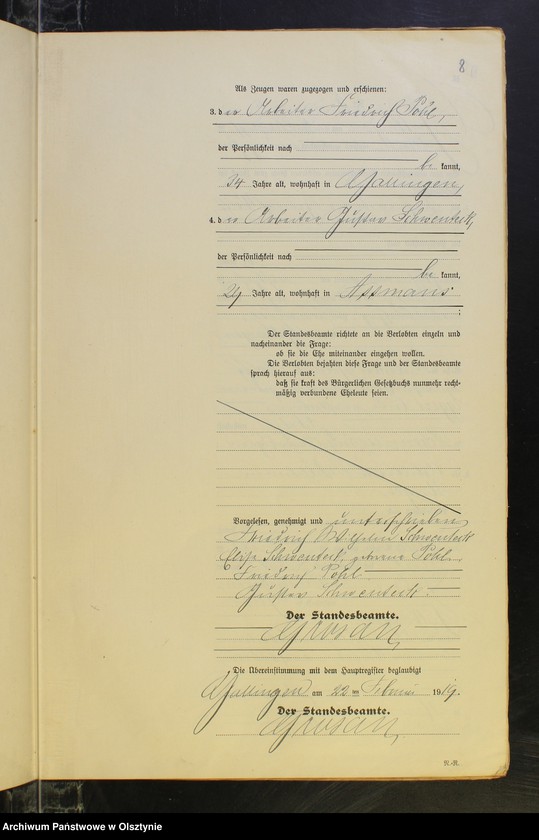 8
Als Zeugen waren zugezogen und erschienen:
3. der Arbeiter Friedrich Pohl,
der Persönlichkeit nach
be kannt,
34 Jahre alt, wohnhaft in
4. der Arbeiter Gustav Schwenteck,
der Persönlichkeit nach
be kannt,
29 Jahre alt, wohnhaft in Assmans
;
Der Standesbeamte richtete an die Verlobten einzeln und
nacheinander die Frage:
ob sie die Ehe miteinander eingehen wollen.
Die Verlobten bejahten diese Frage und der Standesbeamte
sprach hierauf aus:
daß sie kraft des Bürgerlichen Gesetzbuchs nunmehr recht-
mäßig verbundene Eheleute seien.
Vorgelesen, genehmigt und unterschrieben
Friedrich Wilhelm Schwenteck
Schwenteck, geborene Pohl
Friedrich Pohl
Gustav Schwenteck.
Der Standesbeamte.
Die Übereinstimmung mit dem Hauptregister beglaubigt
am 22 ten Februar 1919.
Der Standesbeamte.
N.-R.
Archiwum Państwowe w Olsztynie